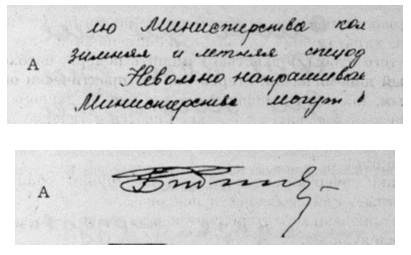 лю Министерства кол
зимняя и летняя спецод
А
Невольно напрашивае
Министерства могут в
А